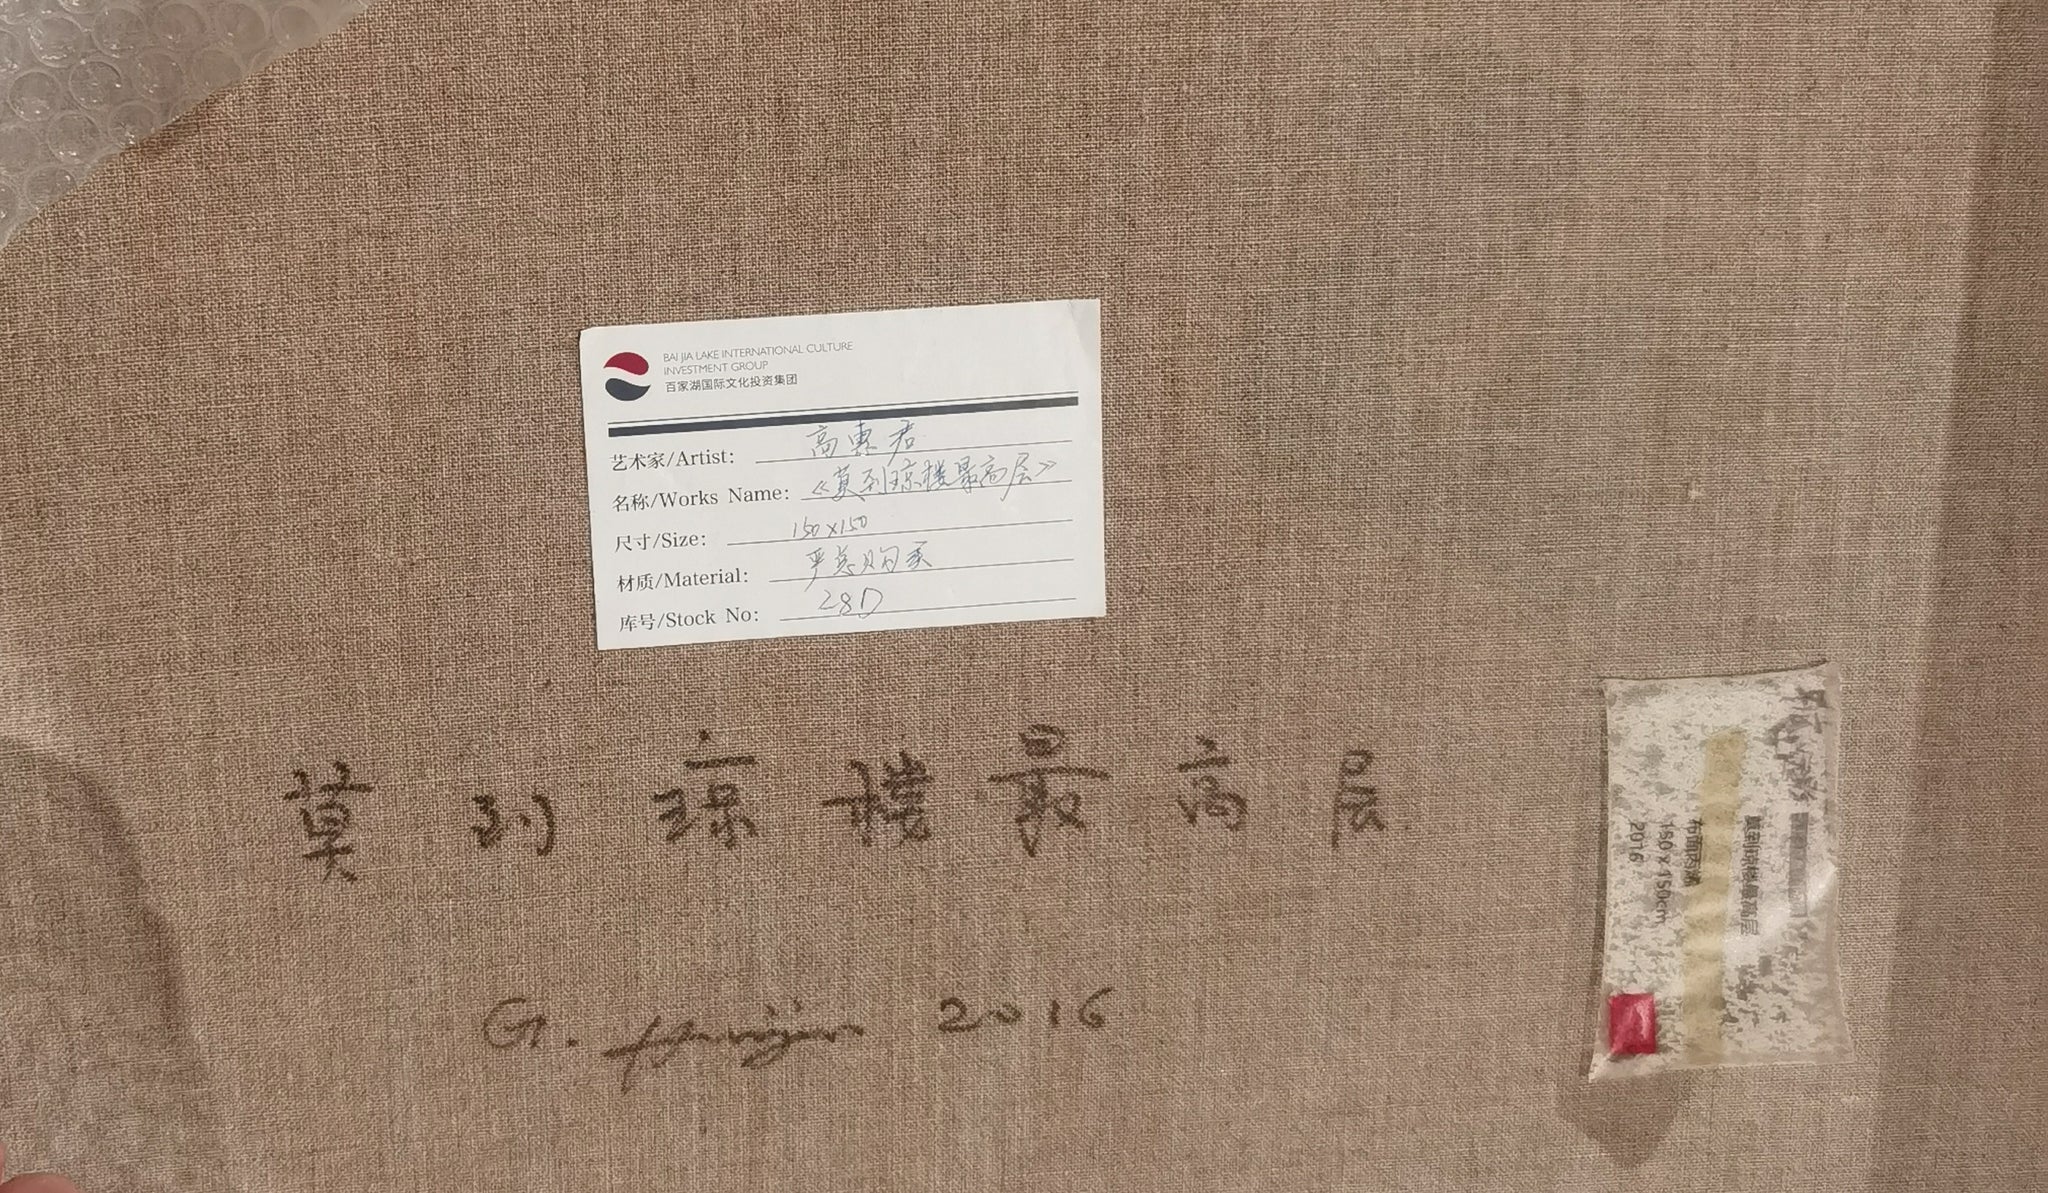 BAI JIA LAKE INTERNATIONAL CULTURE
INVESTMENT GROUP
百家湖国际文化投资集团
艺术家/Artist: 高惠君
名称/Works Name: 《莫到琼楼最高层》
尺寸/Size: 150x150
材质/Material: 严总购买
库号/Stock No: 28D
莫到琼楼最高层
G. Huijun 2016
莫到琼楼最高层
布面丙烯
150 x 150cm
2016